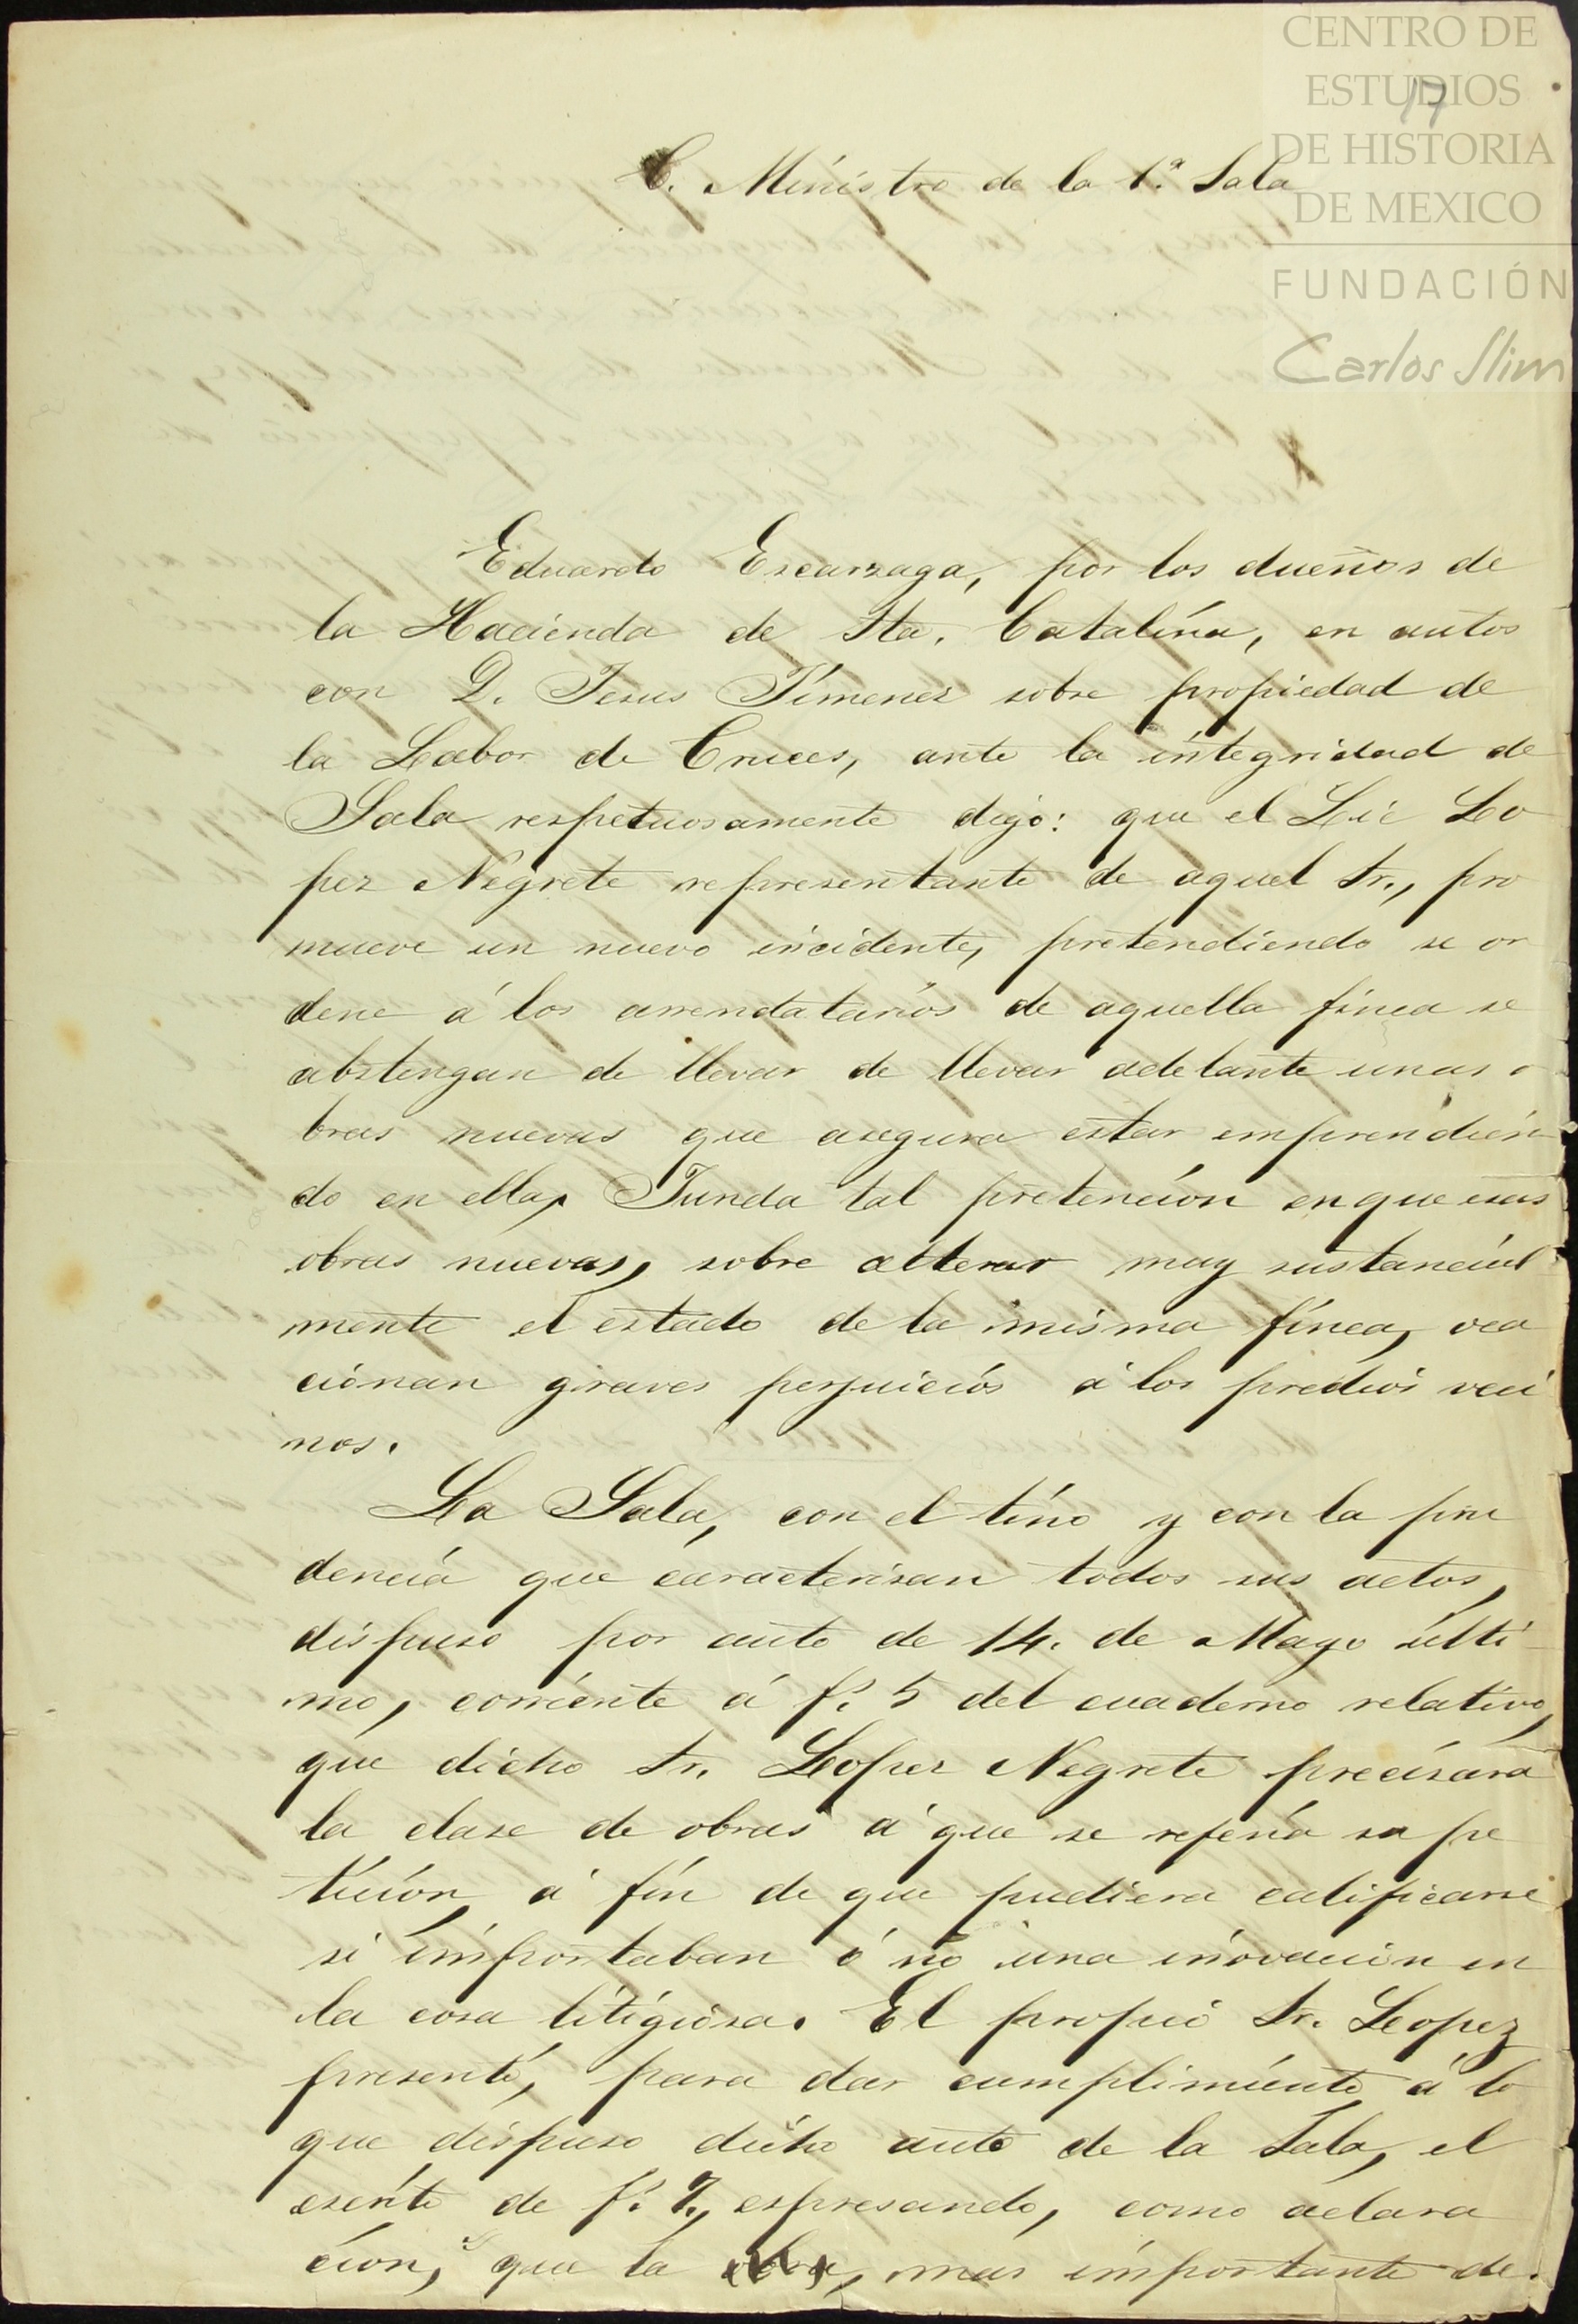 CENTRO DE
ESTUDIOS
DE HISTORIA
DE MEXICO
FUNDACIÓN
Carlos Slim
17
C. Ministro de la 1.ª Sala
Eduardo Escarzaga, por los dueños de
la Hacienda de Sta. Catalina, en autos
con D. Jesus Jimenez sobre propiedad de
la Labor de Cruces, ante la integridad de
Sala respetuosamente digo: que el Lic Lo
pez Negrete representante de aquel Sr., pro
mueve un nuevo incidente, pretendiendo se or
dene á los arrendatarios de aquella finca se
abstengan de llevar de llevar adelante unas o
bras nuevas que asegura estar emprendien
do en ella, Funda tal pretencion en que esas
obras nuevas, sobre alterar muy sustancial
mente el estado de la misma finca, oca
cionan graves perjuicios á los predios veci
nos.
La Sala, con el tino y con la pru
dencia que caracterisan todos sus actos,
dispuso por auto de 14. de Mayo últi
mo, corriente á f. 5 del cuaderno relativo,
que dicho Sr. Lopez Negrete precisára
la clase de obras á que se referia su pe
ticion, á fin de que pudiera calificarse
si importaban ó no una inovacion en
la cosa litigiosa. El propio Sr. Lopez
presentó, para dar cumplimiento á lo
que dispuso dicho auto de la Sala, el
escrito de f. 7., espresando, como aclara
cion, que la obra, mas importante de